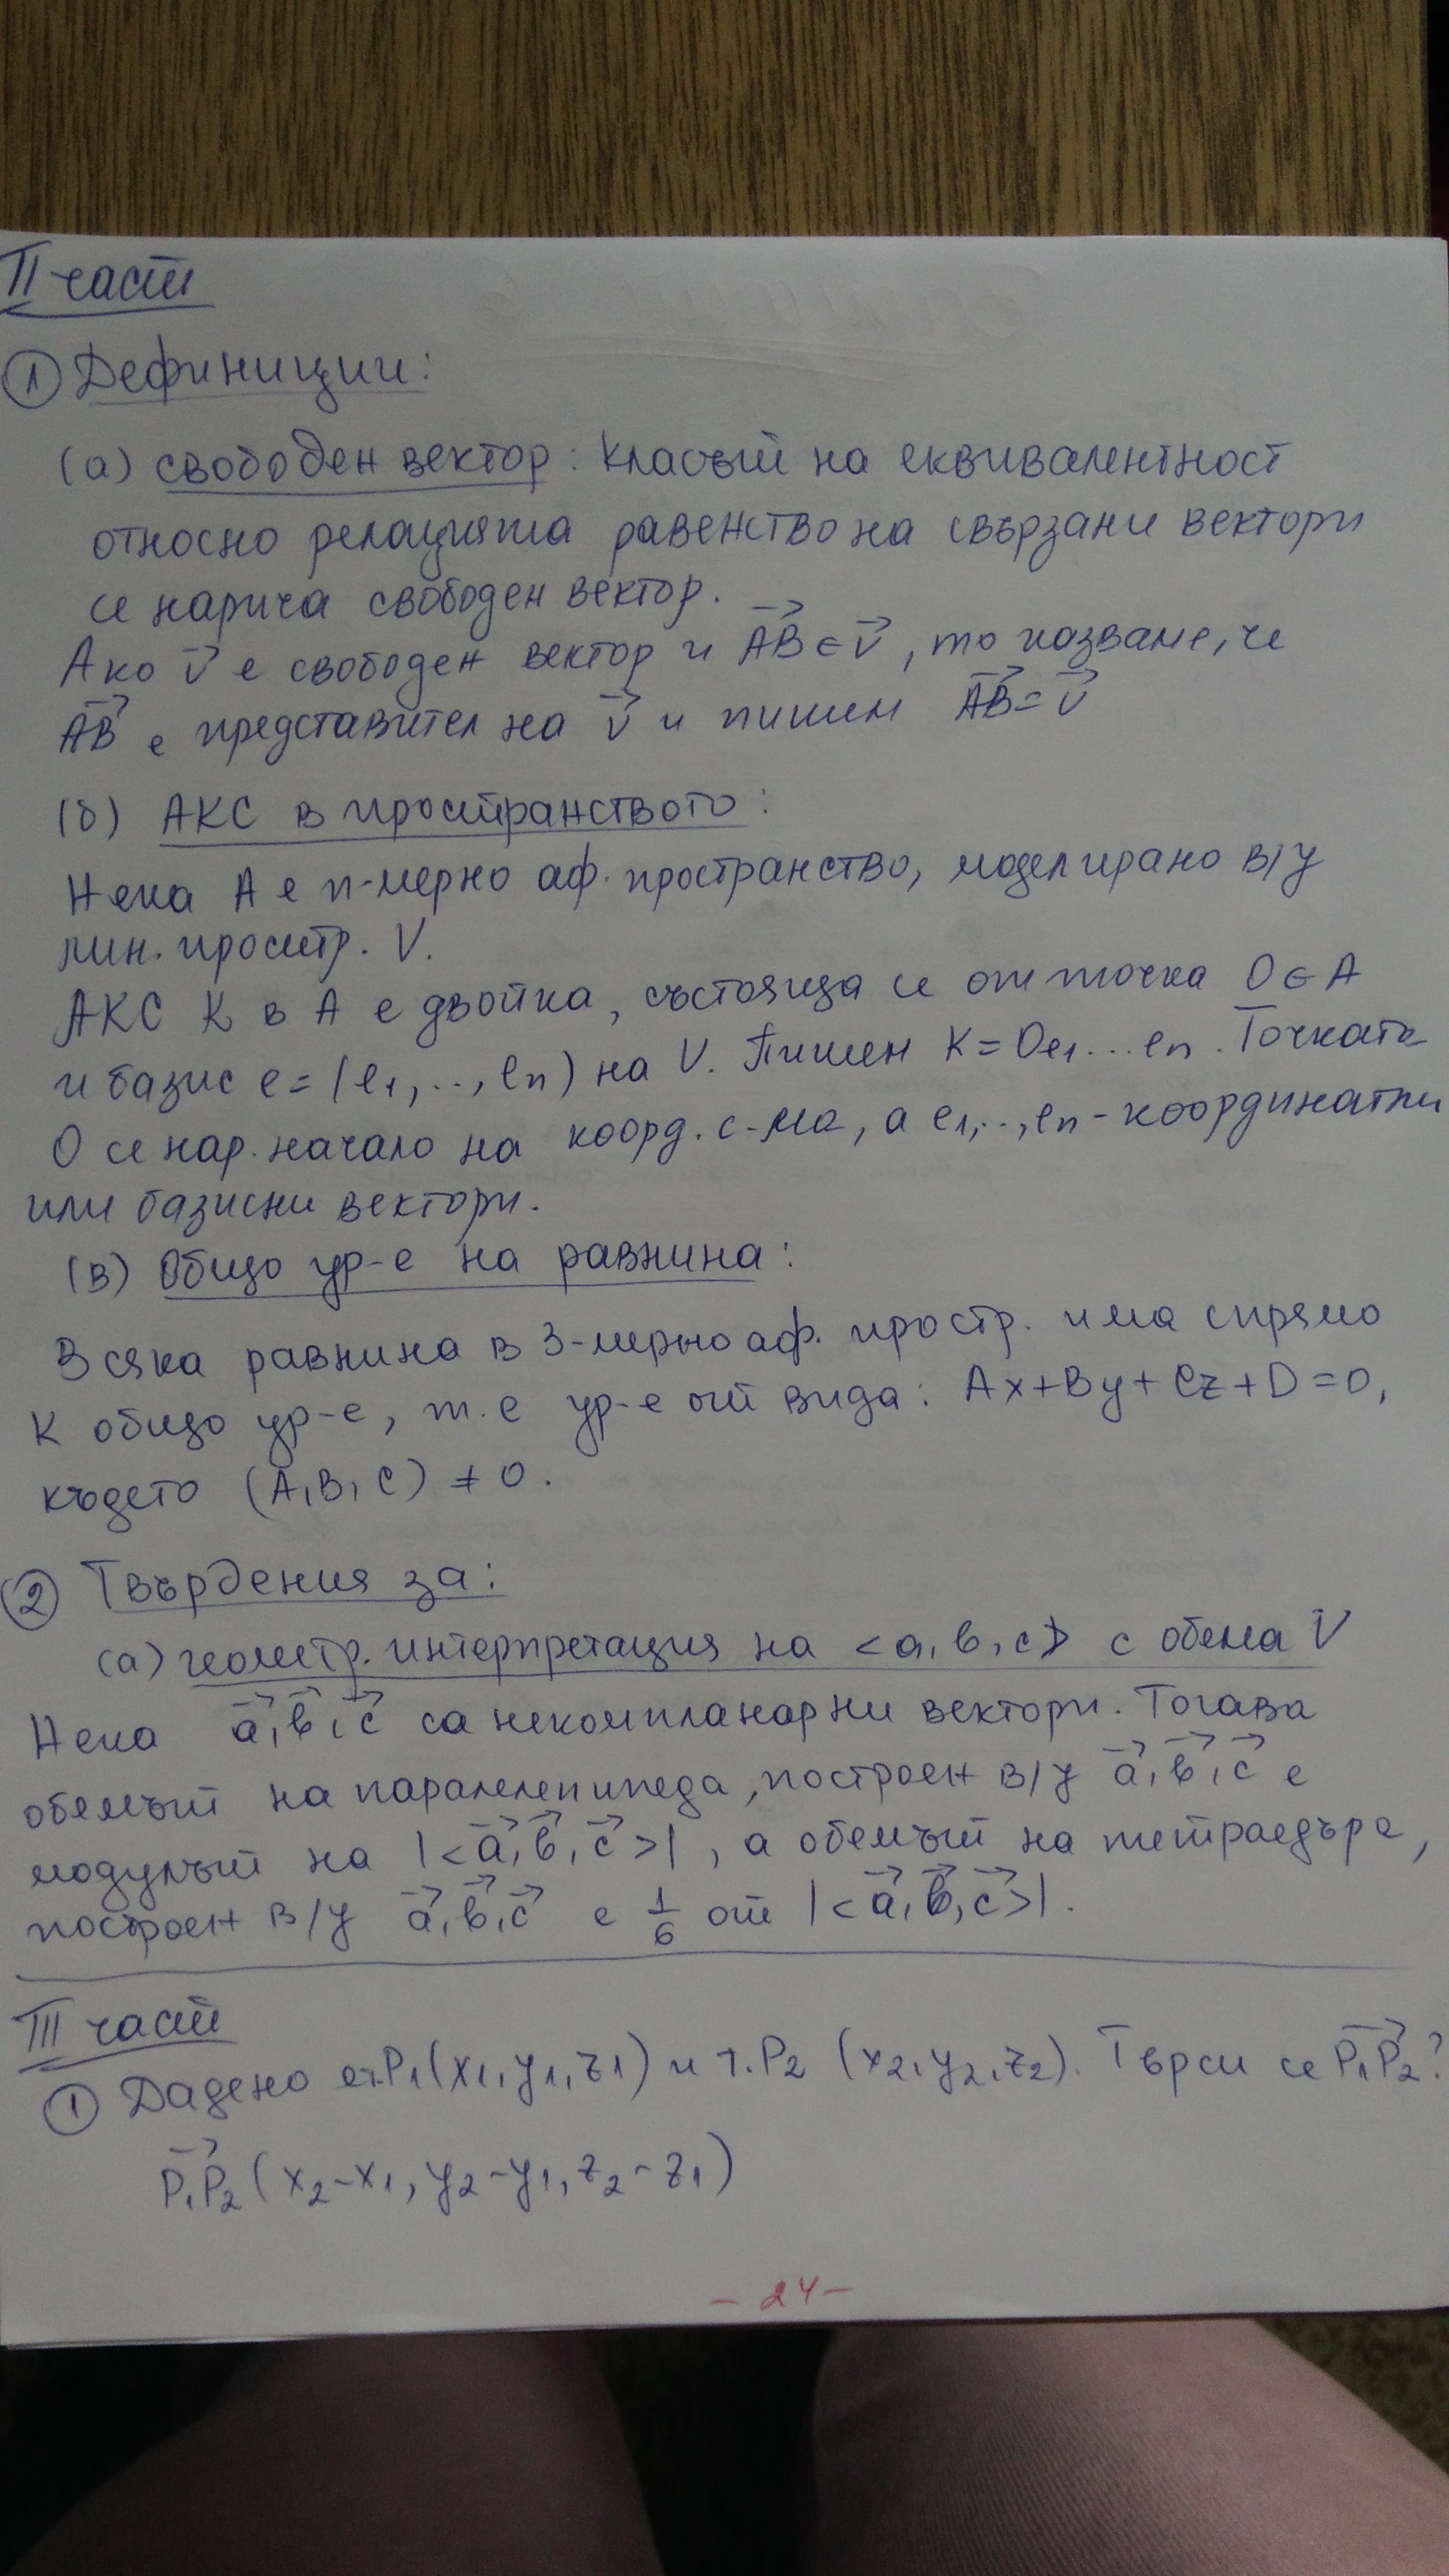 II част
① Дефиниции:
(а) свободен вектор: Класът на еквивалентност
относно релацията равенство на свързани вектори
се нарича свободен вектор.
Ако v⃗ е свободен вектор и AB⃗ ∈ v⃗, то казваме, че
AB⃗ е представител на v⃗ и пишем AB⃗ = v⃗
(б) АКС в пространството:
Нека A е n-мерно аф. пространство, моделирано в/у
лин. простр. V.
АКС K в A е двойка, състояща се от точка O ∈ A
и базис e = (e₁,..,eₙ) на V. Пишем K = Oe₁...eₙ. Точката
O се нар. начало на коорд. с-ма, а e₁,..,eₙ - координатни
или базисни вектори.
(в) Общо ур-е на равнина:
Всяка равнина в 3-мерно аф. простр. има спрямо
K общо ур-е, т.е ур-е от вида: Ax+By+Cz+D=0,
където (A,B,C) ≠ 0.
② Твърдения за:
(а) геометр. интерпретация на <a,b,c> с обема V
Нека a⃗, b⃗, c⃗ са некомпланарни вектори. Тогава
обемът на паралелепипеда, построен в/у a⃗, b⃗, c⃗ е
модулът на |<a⃗, b⃗, c⃗>|, а обемът на тетраедъра,
построен в/у a⃗, b⃗, c⃗ е 1/6 от |<a⃗, b⃗, c⃗>|.
III част
① Дадено т.P₁(x₁,y₁,z₁) и т.P₂ (x₂,y₂,z₂). Търси се P₁P₂⃗?
P₁P₂⃗ (x₂-x₁, y₂-y₁, z₂-z₁)
- 24 -